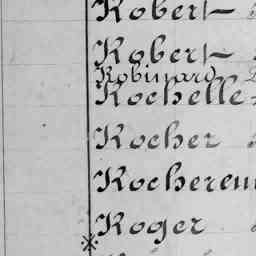 Robert
Robert
Robinard
Rochelle
Rocher
Rochereu
Roger
※